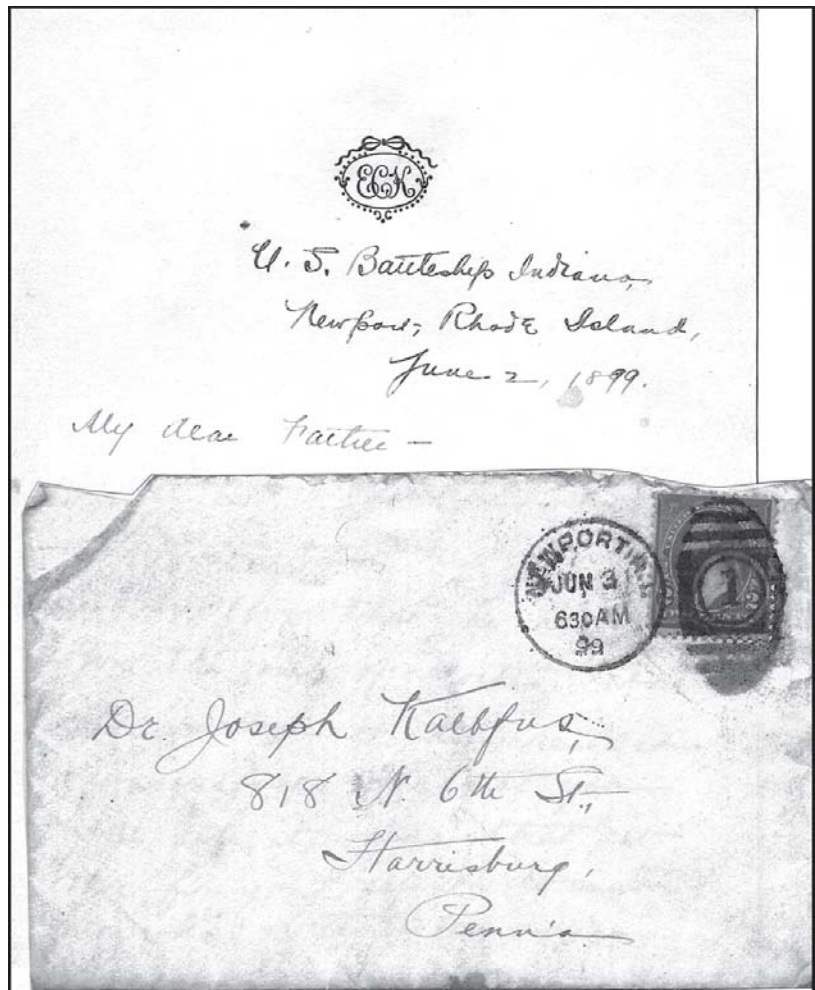 ECK
U. S. Battleship Indiana,
Newport, Rhode Island,
June 2, 1899.
My dear Father –
NEWPORT R.I.
JUN 3
630 AM
99
1
Dr. Joseph Kalbfus,
818 N. 6th St.,
Harrisburg,
Penn'a